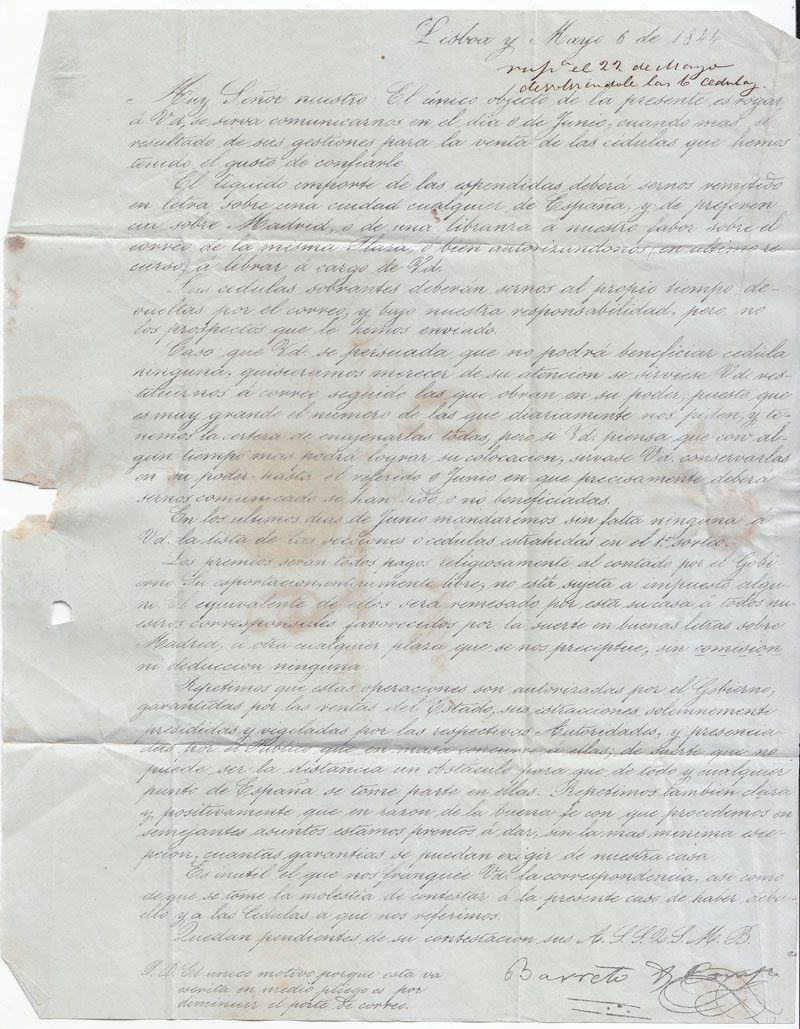 Lisboa y Mayo 6 de 1844
resp.º el 22 de Mayo
devolviendole las 6 cedulas.
Muy Señor nuestro: El único objecto de la presente es rogar
á Vd. se sirva comunicarnos en el dia 6 de Junio, cuando mas, el
resultado de sus gestiones para la venta de las cedulas que hemos
tenido el gusto de confiarle.
El liquido importe de las espendidas deberá sernos remitido
en letra sobre una ciudad cualquer de España, y de preferen
cia sobre Madrid, o de una libranza a nuestro favor sobre el
correo de la misma Plaza, o bien autorizandonos, en ultimo re
curso, á librar a cargo de Vd.
Las cedulas sobrantes deberán sernos al proprio tiempo de-
vueltas por el correo, y bajo nuestra responsabilidad, pero no
los prospectos que le hemos enviado.
Caso que Vd. se persuada que no podrá beneficiar cedula
ninguna, quisieramos merecer de su atencion se sirviese Vd. res-
tituirnos á correo seguido las que obran en su poder, puesto que
es muy grande el numero de las que diariamente nos piden, y te-
nemos la certeza de enajenarlas todas, pero si Vd. piensa que con al-
gun tiempo mas podrá lograr su colocacion, sirvase Vd. conservarlas
en su poder hasta el referido 6 Junio en que precisamente deberá
sernos comunicado se han sido, o no beneficiadas.
En los ultimos dias de Junio mandaremos sin falta ninguna á
Vd. la lista de las secciones o cedulas estrahidas en el 1º sorteo.
Los premios seran todos pagos religiosamente al contado por el Gobi-
erno. Su esportacion, enteramente libre, no está sujeta a impuesto algu-
no. El equivalente de ellos será remesado por esta su casa a todos nu-
estros corresponsales favorecidos por la suerte en buenas letras sobre
Madrid, u otra cualquier plaza que se nos preceptue, sin comision
ni deduccion ninguna.
Repetimos que estas operaciones son autorizadas por el Gobierno,
garantidas por las rentas del Estado, sus estracciones solemnemente
presididas y vigiladas por las respectivas Autoridades, y presencia-
das, por el Publico que en masa concurre a ellas; de suerte que no
puede ser la distancia un obstáculo para que de todo y cualquier
punto de España se tome parte en ellas. Repetimos tambien clara
y positivamente que en razon de la buena fe con que procedemos en
semejantes asuntos estamos prontos á dar, sin la mas minima esce-
pcion, cuantas garantias se puedan exigir de nuestra casa
Es inutil el que nos franquée Vd. la correspondencia, asi como
de que se tome la molestia de contestar á la presente caso de haber
y a las Cedulas a que nos referimos.
Quedan pendientes de su contestacion sus A. S. S. Q. S. M. B.
Barreto y Comp.
P. D. El unico motivo porque esta va
escrita en medio pliego es por
diminuir el porte de correo.